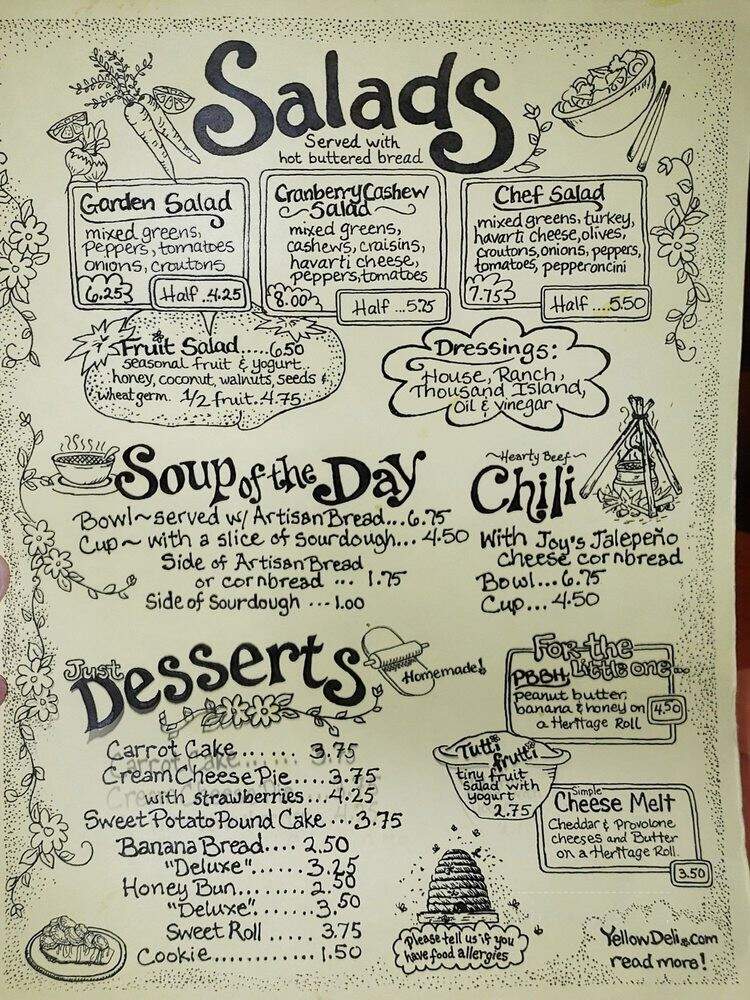 Salads
Served with
hot buttered bread
Garden Salad
mixed greens,
peppers, tomatoes
onions, croutons
6.25
Half ..4.25
Cranberry Cashew
Salad
mixed greens,
cashews, craisins,
havarti cheese,
peppers, tomatoes
8.00
Half ...5.75
Chef Salad
mixed greens, turkey,
havarti cheese, olives,
croutons, onions, peppers,
tomatoes, pepperoncini
7.75
Half ....5.50
Fruit Salad.....6.50
seasonal fruit & yogurt
honey, coconut, walnuts, seeds &
wheat germ. 1/2 fruit. 4.75
Dressings:
House, Ranch,
Thousand Island,
Oil & vinegar
Soup of the Day
Bowl~served w/ Artisan Bread...6.75
Cup~ with a slice of sourdough... 4.50
Side of Artisan Bread
or cornbread ... 1.75
Side of Sourdough ...1.00
~Hearty Beef~
Chili
With Joy's Jalepeño
cheese cornbread
Bowl...6.75
Cup...4.50
Just
Desserts
Homemade!
Carrot Cake...... 3.75
Cream Cheese Pie....3.75
with strawberries...4.25
Sweet Potato Pound Cake...3.75
Banana Bread.... 2.50
"Deluxe"...... 3.25
Honey Bun...... 2.50
"Deluxe"...... 3.50
Sweet Roll ..... 3.75
Cookie...........1.50
For the
Little one...
PBBH,
peanut butter,
banana & honey on
a Heritage Roll
4.50
Tutti
frutti
tiny fruit
salad with
yogurt
2.75
Simple
Cheese Melt
Cheddar & Provolone
cheeses and Butter
on a Heritage Roll
3.50
please tell us if you
have food allergies
YellowDeli.com
read more!